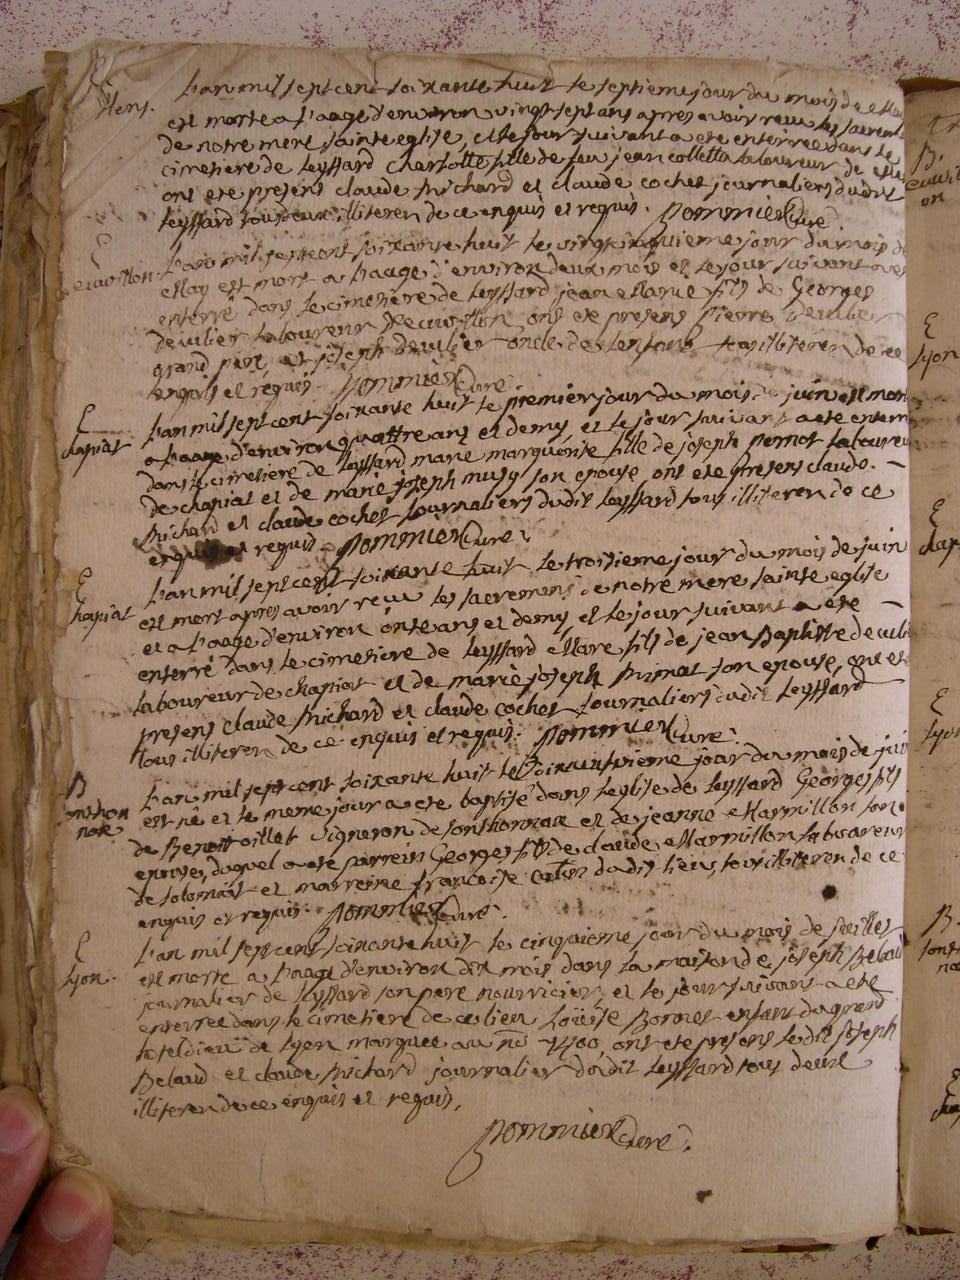 E
Mens.
L'an mil sept cent soixante huit le septieme jour du mois de may
est morte a l'aage d'environ vingt sept ans apres avoir receu les sacrem
de notre mere sainte eglise, et le jour suivant a eté enterrée dans le
cimetiere de leyssard Charlotte fille de feu jean colletta laboureur de
ont eté presens claude Michard et claude cochet journaliers dudit
leyssard tous deux illiteren de ce enquis et requis. Pommier curé.
E
L'an mil sept cent soixante huit le vingt cinquieme jour du mois de
May est mort a l'aage d'environ deux mois et le jour suivant a eté
enterré dans le cimetiere de leyssard jean Marie fils de Georges
Deculier laboureur ont eté presens Pierre Deculier
grand pere, et joseph Deculier oncle de l'enfant illiteren de ce
enquis et requis. Pommier curé.
E
chapiat
L'an mil sept cent soixante huit le premier jour du mois de juin est mort
a l'aage d'environ quattre ans et demy, et le jour suivant a eté enterré
dans le cimetiere de leyssard marie marguerite fille de joseph Pernot laboureur
de chapiat et de marie joseph musy son epouse, ont eté presens claude
Michard et claude cochet journaliers dudit leyssard tous illiteren de ce
enquis et requis. Pommier curé.
E
chapiat
L'an mil sept cent soixante huit le troisieme jour du mois de juin
est mort apres avoir receu les sacremens de notre mere sainte eglise
et a l'aage d'environ onze ans et demy et le jour suivant a eté
enterré dans le cimetiere de leyssard Marc fils de jean Baptiste deculi
laboureur de chapiat et de marie joseph Primat son epouse, ont eté
presens claude Michard et claude cochet journaliers dudit leyssard
tous illiteren de ce enquis et requis. Pommier curé.
B
onthon
nax
L'an mil sept cent soixante huit le jour du mois de juin
est né et le meme jour a eté baptisé dans l'eglise de leyssard Georges fils
de Benoit oillet vigneron de sonthonnax et de jeanne Marmillon son
epouse, duquel a eté parrein Georges fils de claude Marmillon laboureur
de solomiat et marreine françoise dudit lieu, tous illiteren de ce
enquis et requis. Pommier curé.
E
Lyon.
L'an mil sept cent soixante huit le cinquieme jour du mois de juillet
est morte a l'aage d'environ dix mois dans la maison de joseph Belaud
journalier de leyssard son pere nourricier, et le jour suivant a eté
enterrée dans le cimetiere de ce lieu Loüise Bonnet enfant du grand
hoteldieu de Lyon marquée au no 1400, ont eté presens ledit joseph
Belaud et claude Michard journalier dudit leyssard tous deux
illiteren de ce enquis et requis.
Pommier curé.
B.
E
Lyon
E
chap
E
Lyon
B.
E